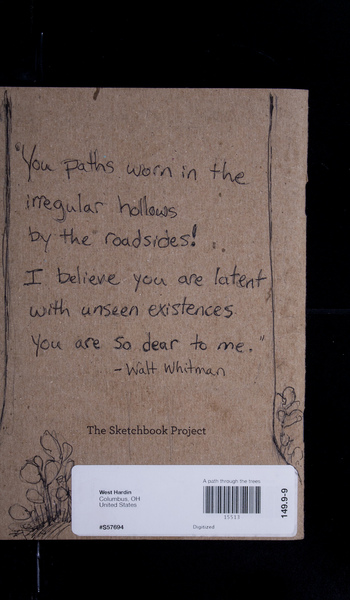 "You paths worn in the
irregular hollows
by the roadsides!
I believe you are latent
with unseen existences
you are so dear to me."
-Walt Whitman
The Sketchbook Project
A path through the trees
West Hardin
Columbus, OH
United States
15513
149.9-9
#S57694
Digitized